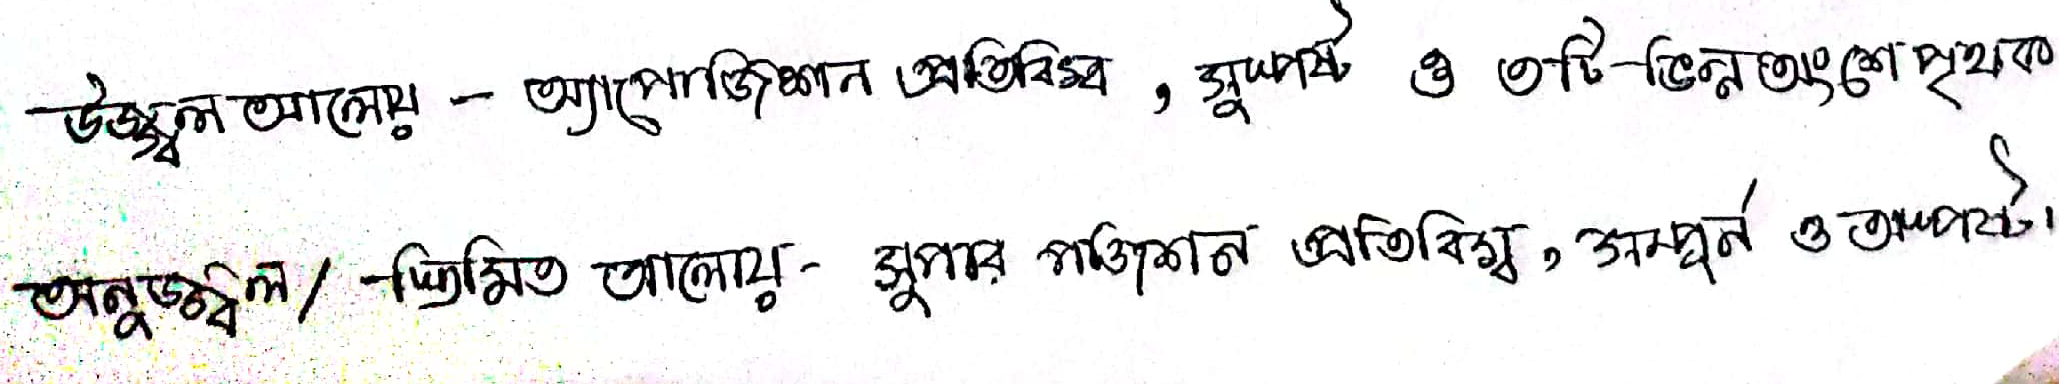 উজ্জ্বল আলোয় - অ্যাপোজিশান প্রতিবিম্ব, সুস্পষ্ট ও ৩টি ভিন্ন অংশে পৃথক
অনুজ্জ্বল / স্তিমিত আলোয় - সুপার পজিশান প্রতিবিম্ব, সম্পূর্ন ও অস্পষ্ট।